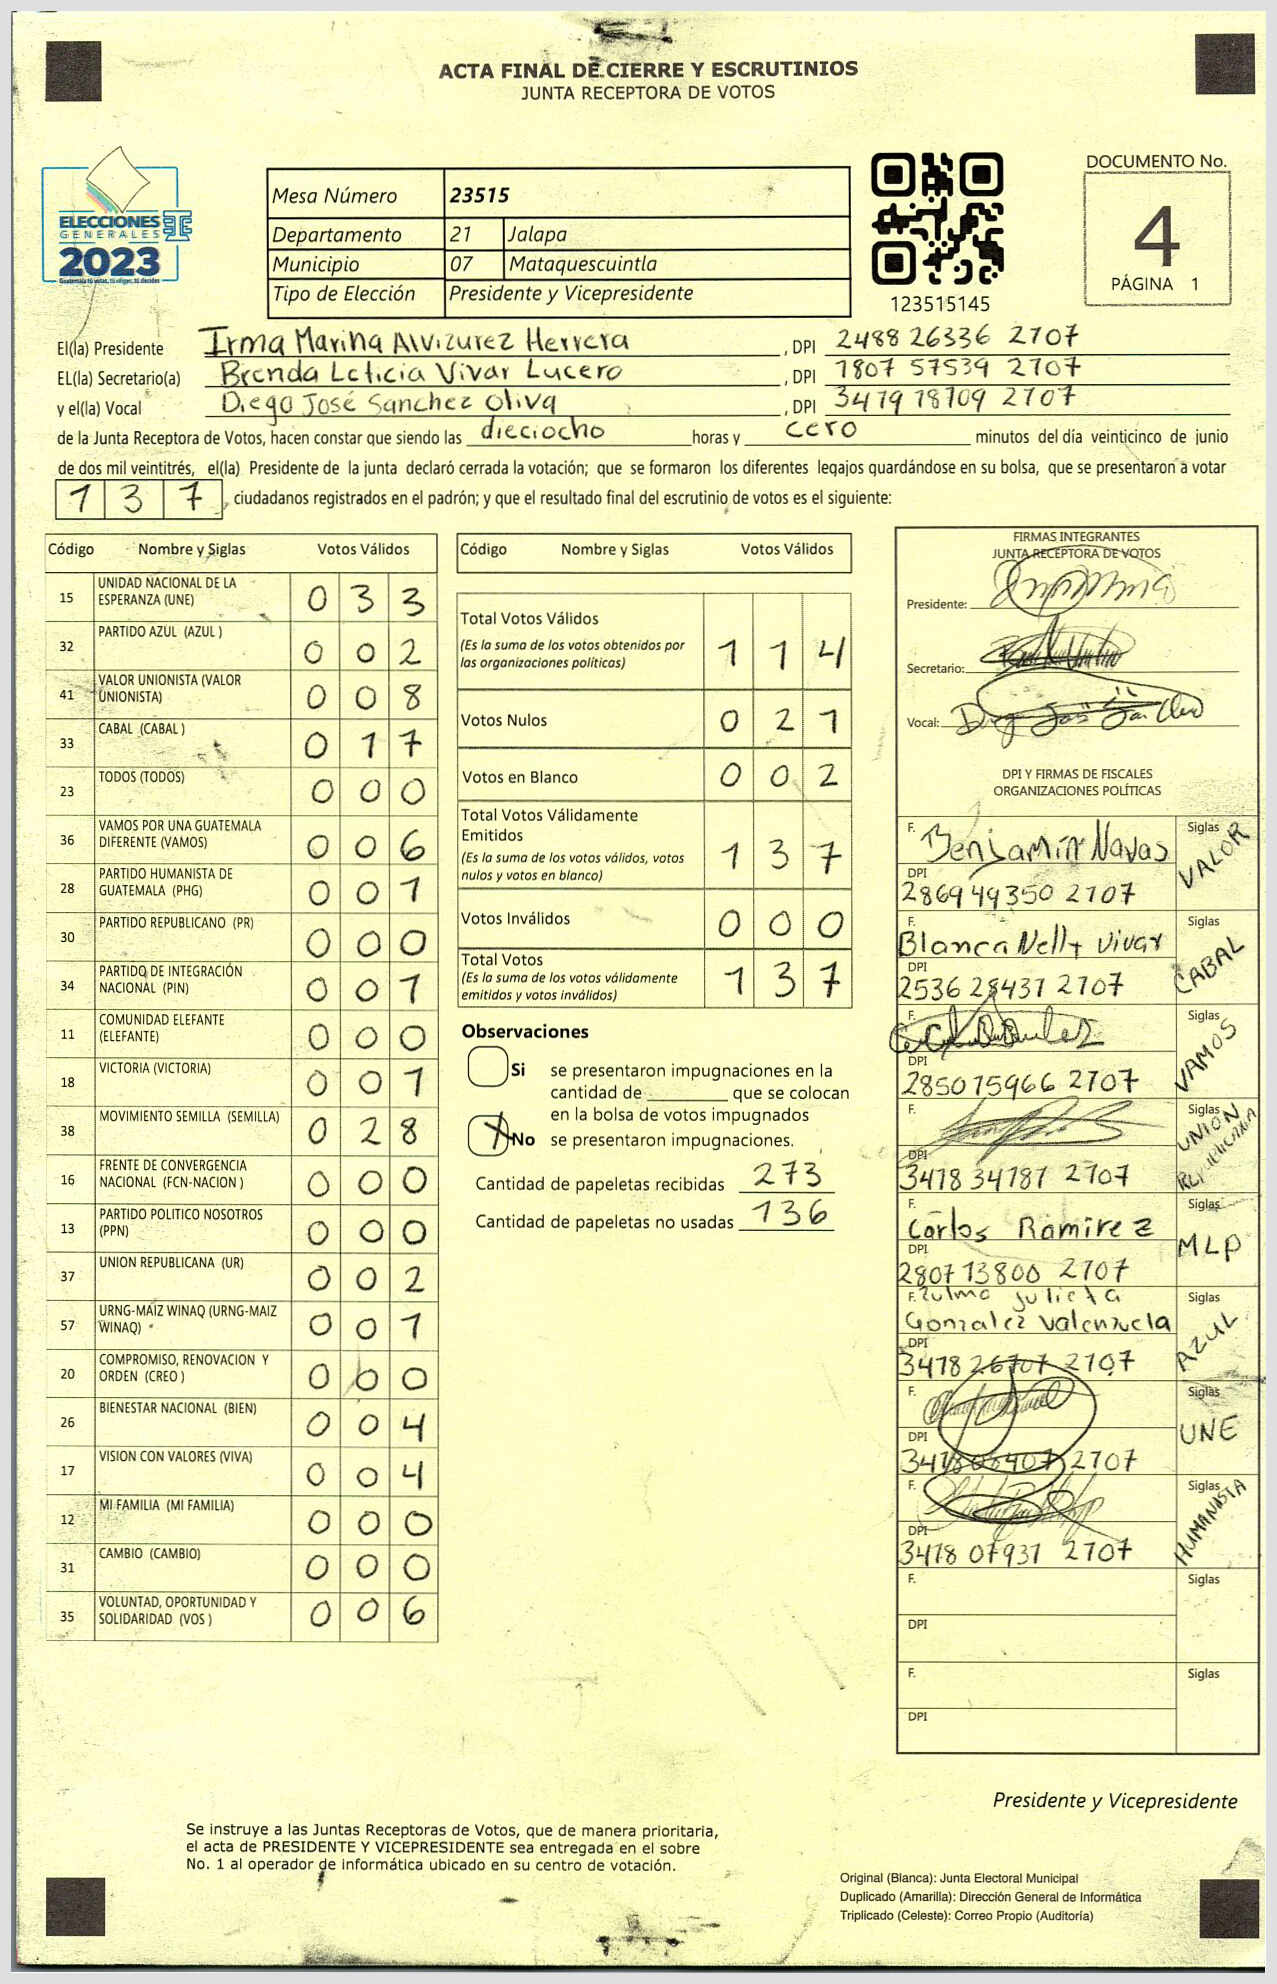 ACTA FINAL DE CIERRE Y ESCRUTINIOS
JUNTA RECEPTORA DE VOTOS
ELECCIONES
GENERALES
2023
Guatemala tú votas, tú eliges, tú decides
Mesa Número 23515
Departamento 21 Jalapa
Municipio 07 Mataquescuintla
Tipo de Elección Presidente y Vicepresidente
123515145
DOCUMENTO No.
4
PÁGINA 1
El(la) Presidente Irma Marina Alvizurez Herrera , DPI 2488 26336 2707
EL(la) Secretario(a) Brenda Leticia Vivar Lucero , DPI 1807 57539 2707
y el(la) Vocal Diego José Sanchez Oliva , DPI 3479 18709 2707
de la Junta Receptora de Votos, hacen constar que siendo las dieciocho horas y cero minutos del día veinticinco de junio
de dos mil veintitrés, el(la) Presidente de la junta declaró cerrada la votación; que se formaron los diferentes legajos guardándose en su bolsa, que se presentaron a votar
137 , ciudadanos registrados en el padrón; y que el resultado final del escrutinio de votos es el siguiente:
Código Nombre y Siglas Votos Válidos
15 UNIDAD NACIONAL DE LA ESPERANZA (UNE) 0 3 3
32 PARTIDO AZUL (AZUL ) 0 0 2
41 VALOR UNIONISTA (VALOR UNIONISTA) 0 0 8
33 CABAL (CABAL ) 0 1 7
23 TODOS (TODOS) 0 0 0
36 VAMOS POR UNA GUATEMALA DIFERENTE (VAMOS) 0 0 6
28 PARTIDO HUMANISTA DE GUATEMALA (PHG) 0 0 1
30 PARTIDO REPUBLICANO (PR) 0 0 0
34 PARTIDO DE INTEGRACIÓN NACIONAL (PIN) 0 0 1
11 COMUNIDAD ELEFANTE (ELEFANTE) 0 0 0
18 VICTORIA (VICTORIA) 0 0 1
38 MOVIMIENTO SEMILLA (SEMILLA) 0 2 8
16 FRENTE DE CONVERGENCIA NACIONAL (FCN-NACION ) 0 0 0
13 PARTIDO POLITICO NOSOTROS (PPN) 0 0 0
37 UNION REPUBLICANA (UR) 0 0 2
57 URNG-MAIZ WINAQ (URNG-MAIZ WINAQ) 0 0 1
20 COMPROMISO, RENOVACION Y ORDEN (CREO ) 0 0 0
26 BIENESTAR NACIONAL (BIEN) 0 0 4
17 VISION CON VALORES (VIVA) 0 0 4
12 MI FAMILIA (MI FAMILIA) 0 0 0
31 CAMBIO (CAMBIO) 0 0 0
35 VOLUNTAD, OPORTUNIDAD Y SOLIDARIDAD (VOS ) 0 0 6
Código Nombre y Siglas Votos Válidos
Total Votos Válidos 1 1 4
(Es la suma de los votos obtenidos por
las organizaciones políticas)
Votos Nulos 0 2 1
Votos en Blanco 0 0 2
Total Votos Válidamente
Emitidos 1 3 7
(Es la suma de los votos válidos, votos
nulos y votos en blanco)
Votos Inválidos 0 0 0
Total Votos 1 3 7
(Es la suma de los votos válidamente
emitidos y votos inválidos)
Observaciones
Si se presentaron impugnaciones en la
cantidad de ________ que se colocan
en la bolsa de votos impugnados
X No se presentaron impugnaciones.
Cantidad de papeletas recibidas 273
Cantidad de papeletas no usadas 136
FIRMAS INTEGRANTES
JUNTA RECEPTORA DE VOTOS
Presidente:
Secretario:
Vocal:
DPI Y FIRMAS DE FISCALES
ORGANIZACIONES POLÍTICAS
F. Benjamin Navas Siglas VALOR
DPI 2869 49350 2107
F. Blanca Nelly Vivar Siglas CABAL
DPI 2536 28431 2107
F. Siglas VAMOS
DPI 2850 75966 2707
F. Siglas UNION REPUBLICANA
DPI 3418 34781 2707
F. Carlos Ramirez Siglas MLP
DPI 2807 13800 2707
F. Zulma Julieta
Gonzalez Valenzuela Siglas AZUL
DPI 3478 26707 2707
F. Siglas UNE
DPI 2707
F. Siglas HUMANISTA
DPI 3418 07931 2707
F. Siglas
DPI
F. Siglas
DPI
Presidente y Vicepresidente
Se instruye a las Juntas Receptoras de Votos, que de manera prioritaria,
el acta de PRESIDENTE Y VICEPRESIDENTE sea entregada en el sobre
No. 1 al operador de informática ubicado en su centro de votación.
Original (Blanca): Junta Electoral Municipal
Duplicado (Amarilla): Dirección General de Informática
Triplicado (Celeste): Correo Propio (Auditoría)